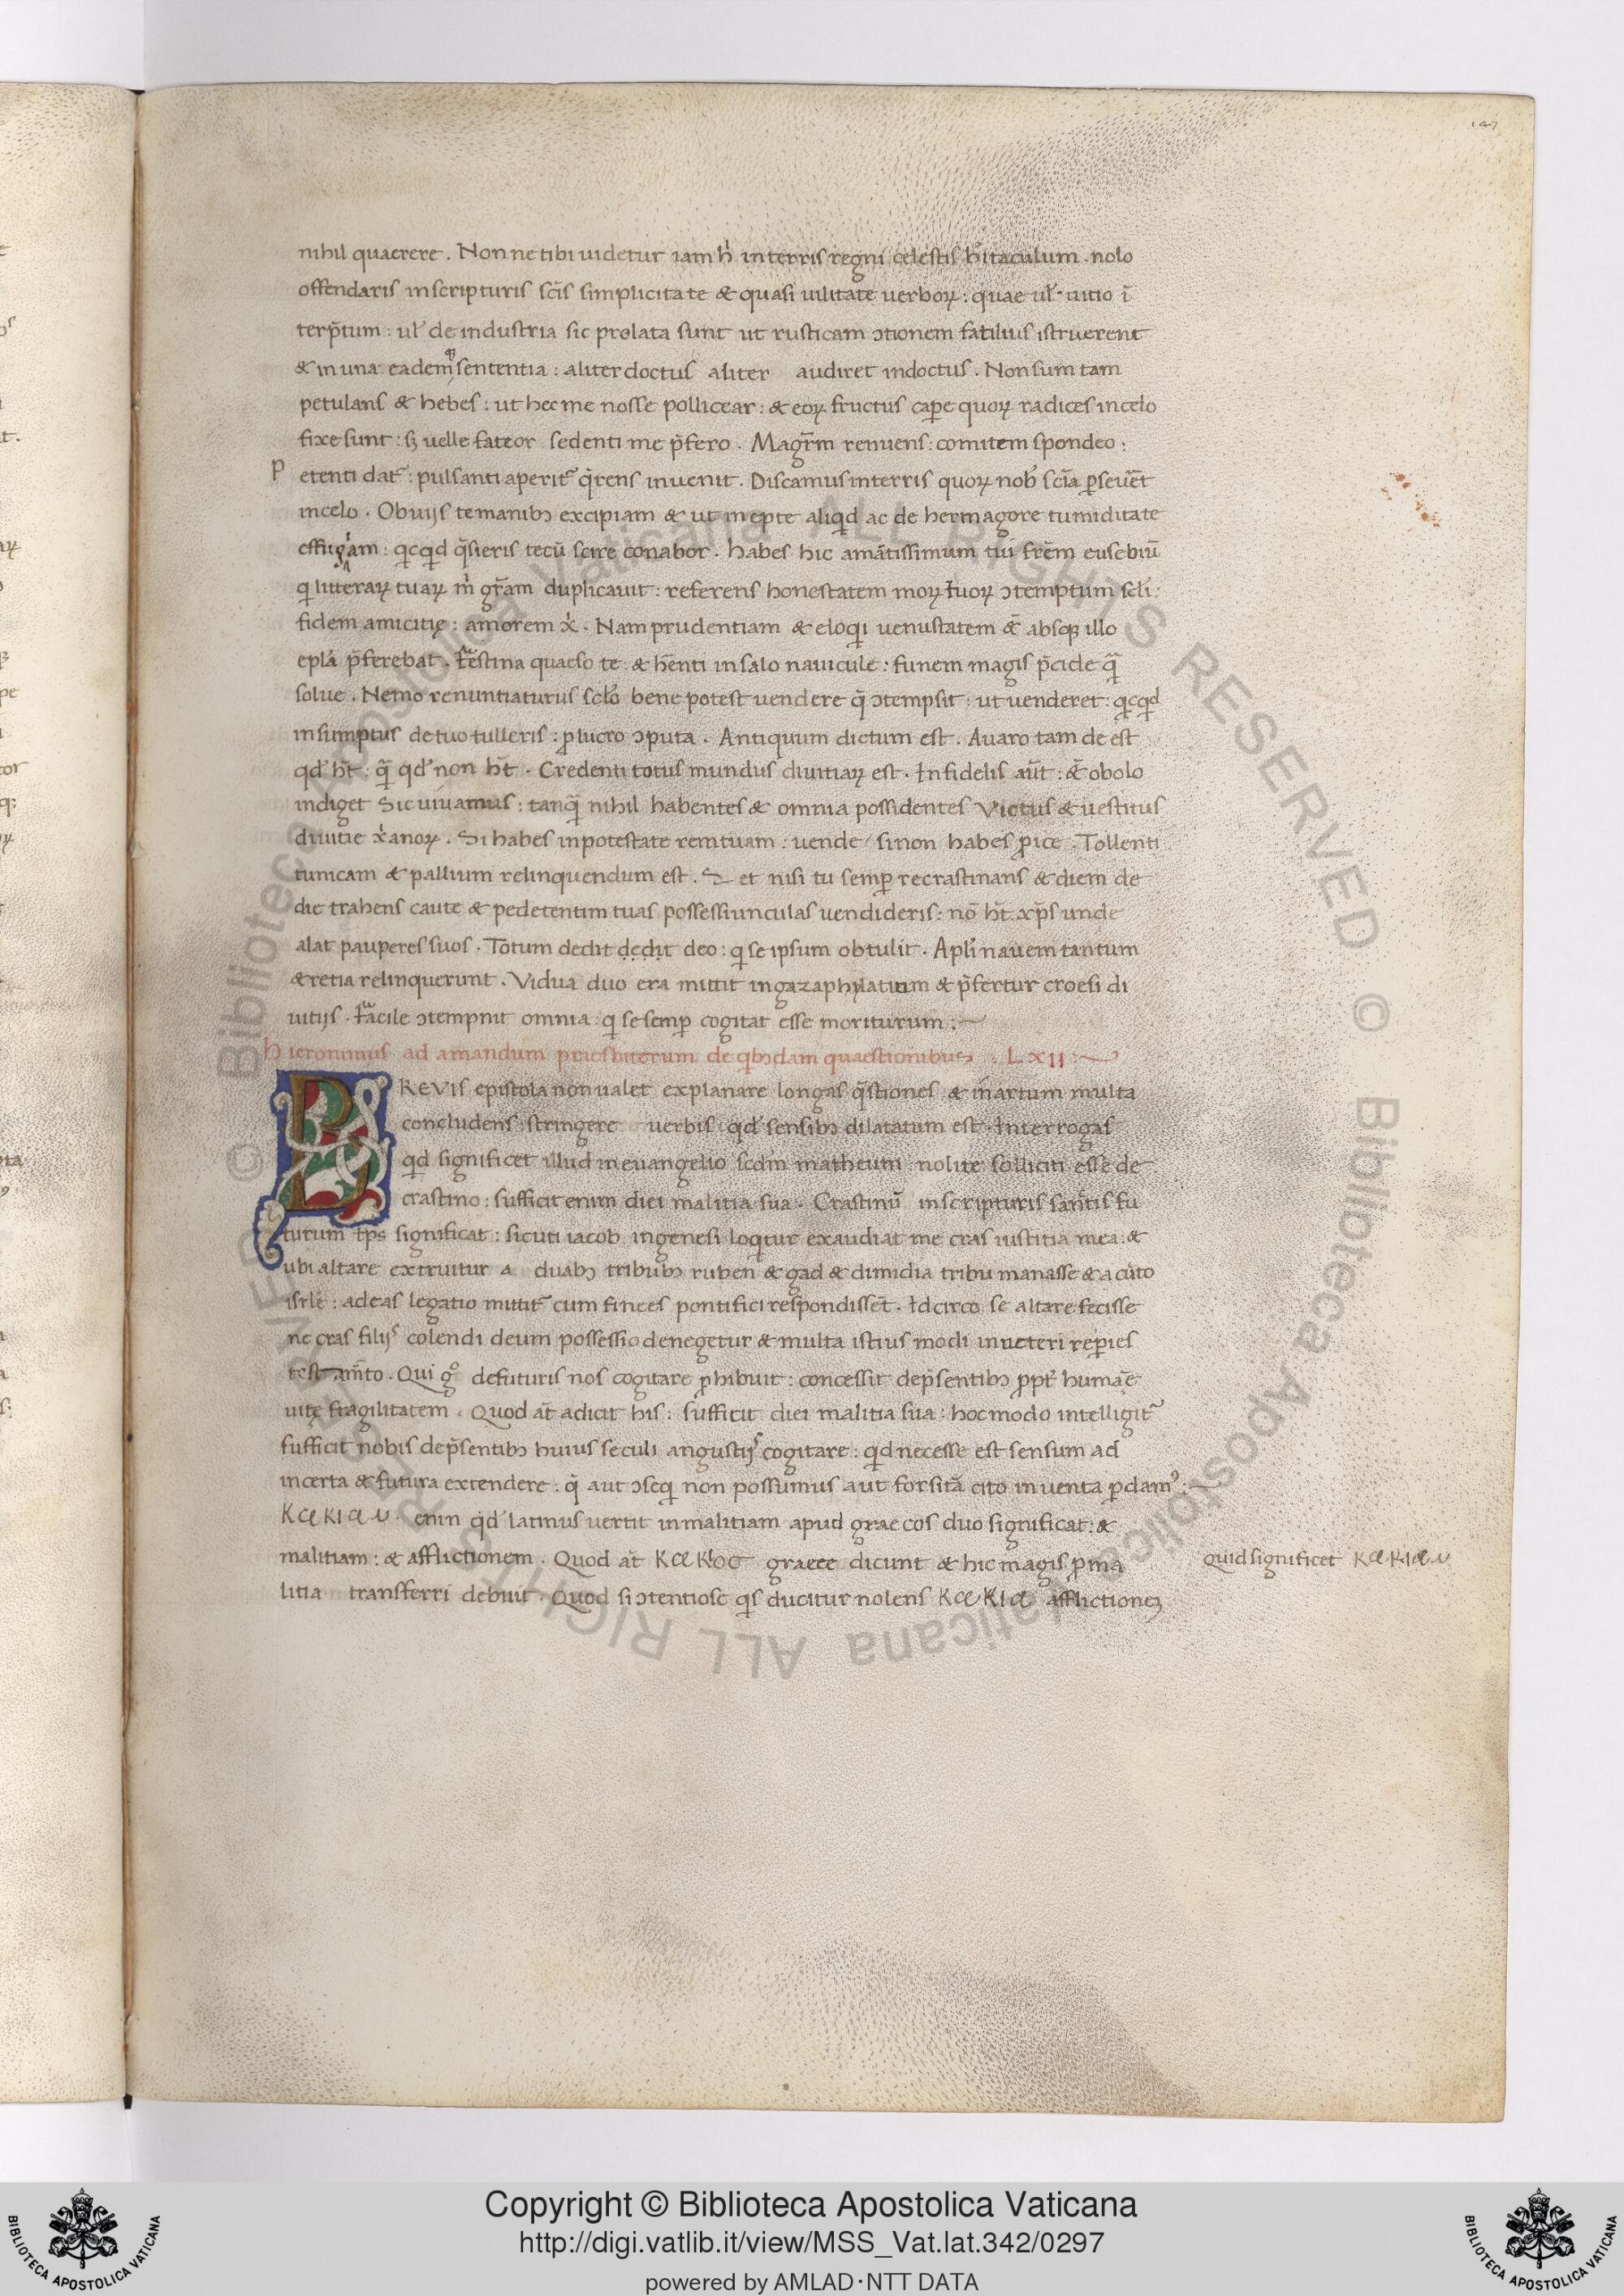 147
nihil quaerere . Non ne tibi uidetur iam h̓ in terris regni celestis h̓itaculum . nolo
offendaris in scripturis sc̄is simplicitate & quasi uilitate uerboꝝ : quae ul̓ uitio ī
terp̄tum : ul̓ de industria sic prolata sunt ut rusticam ↄtionem faciliꝰ istruerent
& in una eademq̄ sententia : aliter doctus aliter audiret indoctus . Non sum tam
petulans & hebes : ut hec me nosse pollicear : & eoꝝ fructus caꝑe quoꝝ radices in celo
fixe sunt : sꝫ uelle fateor sedenti me p̄fero . Magr̄m renuens : comitem spondeo :
P etenti dat᷑ : pulsanti aperit᷑ q̄rens inuenit . Discamus in terris quoꝝ nob̓ sc̄ia ꝑseuēt
in celo . Obuijs te manibꝫ excipiam & ut inepte aliqd ac de hermagore tumiditate
effugiam : qcqd q̄sieris tecū scire conabor . habes hic amātissimum tui fr̄em eusebiū
q litteraꝝ tuaꝝ m̓ gr̄am duplicauit : referens honestatem moꝝ tuoꝝ ↄtemptum sc̄li :
fidem amicitię : amorem x̓ . Nam prudentiam & eloqi uenustatem & absqꝫ illo
epl̓a p̄ferebat . festina quaeso te & hēnti in salo nauicule : funem magis p̄cide q̄
solue . Nemo renuntiaturus scl̓o bene potest uendere q̄ ↄtempsit : ut uenderet : qcqd
in sumptus de tuo tulleris : ꝓ lucro ↄputa . Antiquum dictum est . Auaro tam de est
qd̓ ht̄ : q̄ qd̓ non ht̄ . Credenti totus mundus diuitiaꝝ est . Infidelis aūt : & obolo
indiget Sic uiuamus : tanq̄ nihil habentes & omnia possidentes Victus & uestitus
diuitie x̓anoꝝ . Si habes in potestate rem tuam : uende / si non habes ꝓice . Tollenti
tunicam & pallium relinquendum est . S et nisi tu semꝑ recrastinans & diem de
die trahens caute & pedetentim tuas possessiunculas uendideris : nō ht̄ xp̄s unde
alat pauperes suos . Totum dedit dedit deo : q se ipsum obtulit . Apl̓i nauem tantum
& retia relinquerunt . Vidua duo era mittit in gazaphylatium & p̄fertur croesi di
uitijs . facile ↄtempnit omnia : q se semꝑ cogitat esse moriturum :
Hieronimus ad amandum praesbiterum de qbꝫdam quaestionibus . LXII :
BREVIS epistola non ualet explanare longas q̄stiones & in artum multa
concludens : stringere uerbis : qd̓ sensibꝫ dilatatum est . Interrogas
qd significet illud in euangelio scd̄m matheum : nolite solliciti esse de
crastino : sufficit enim diei malitia sua . Crastinū in scripturis santis fu
turum tp̄s significat : sicuti iacob in genesi loqtur exaudiat me cras iustitia mea : &
ubi altare extruitur a duabꝫ tribubꝫ ruben & gad & dimidia tribu manasse & a cūto
isrl̓e : ad eas legatio mittit᷑ cum finees pontifici respondisset . Idcirco se altare fecisse
ne cras filijs colendi deum possessio denegetur & multa istius modi in ueteri reperies
testam̄to . Qui gͦ de futuris nos cogitare ꝓhibuit : concessit de p̄sentibꝫ ꝓpt̓ humanę
uitę fragilitatem . Quod at̄ adicit his : sufficit diei malitia sua : hoc modo intelligit᷑
sufficit nobis de p̄sentibꝫ huius seculi angustijs cogitare : qd necesse est sensum ad
incerta & futura extendere : q̄ aut ↄseq non possumus aut forsitā cito inuenta ꝑdamꝰ :
ΚΑΚΙΑΝ . enim qd̓ latinus uertit in malitiam apud graecos duo significat : &
malitiam : & afflictionem . Quod at̄ ΚΑΚѡС graece dicunt & hic magis ꝓ ma
litia transferri debuit . Quod si ↄtentiose qs ducitur nolens ΚΑΚΙΑ afflictioneꝫ
quid significet ΚΑΚΙΑΝ
Copyright © Biblioteca Apostolica Vaticana
http://digi.vatlib.it/view/MSS_Vat.lat.342/0297
powered by AMLAD·NTT DATA